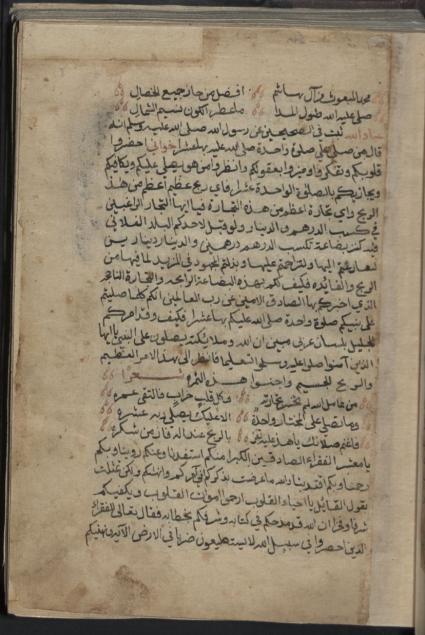 محمد المبعوث من آل هاشم افضل من حاز جميع الخصال
صلى عليه الله طول المدا ما عطر الكون نسيم الشمال
عباد الله ثبت في الصحيحين عن رسول الله صلى الله عليه وسلم انه
قال من صلى علي صلوة واحدة صلى الله عليه بها عشرا اخواني احضروا
قلوبكم وتفكروا وميزوا بعقولكم وانظروا من هو يصلي عليكم ويكافيكم
ويجازيكم بالصلوة الواحدة عشرا فاي ربح عظيم اعظم من هذا
الربح واي تجارة اعظم من هذه التجارة فيا ايها التجار الراغبين
في كسب الدرهم والدينار ولو قيل لاحدكم البلد الفلاني
بضاعة تكسب الدرهم درهمين والدينار دينارين
اليها وتزاحمتم عليها وبذلتم المجهود في المزيد لما فيها من
الربح والفائده فكيف لكم بهذه البضاعة الرابحه والتجارة الناجحه
الذي اخبركم بها الصادق الامين عن رب العالمين انكم كلما صليتم
على نبيكم صلوة واحدة صلى الله عليكم بها عشرا فكيف وقد امركم
الجليل بلسان عربي مبين ان الله وملائكته يصلون على النبي يا ايها
الذين آمنوا صلوا عليه وسلموا تسليما فانظر الى هذا الامر العظيم
والربح الجسيم واجتنوا هذه الثمره شعرا
من عامل الله لم يخسر تجارته وكل قلب خراب فالتقى عمره
وما تصلي على المختار واحدة الا عليك يصلي ربه عشرة
فاغنم صلاتك يا هذا عليه تفز بالربح عند اله فاز من شكره
يا معشر الفقراء الصادقين الكبرا منكم استفدنا وعنكم روينا وبكم
نقول القائل يا احباء القلوب ارحموا موتى القلوب ويكفيكم
شرفا وفخرا ان الله قد مدحكم في كتابه وشرفكم بخطابه فقال تعالى للفقراء
الذين احصروا في سبيل الله لا يستطيعون ضربا في الارض الآيه ونهنيكم